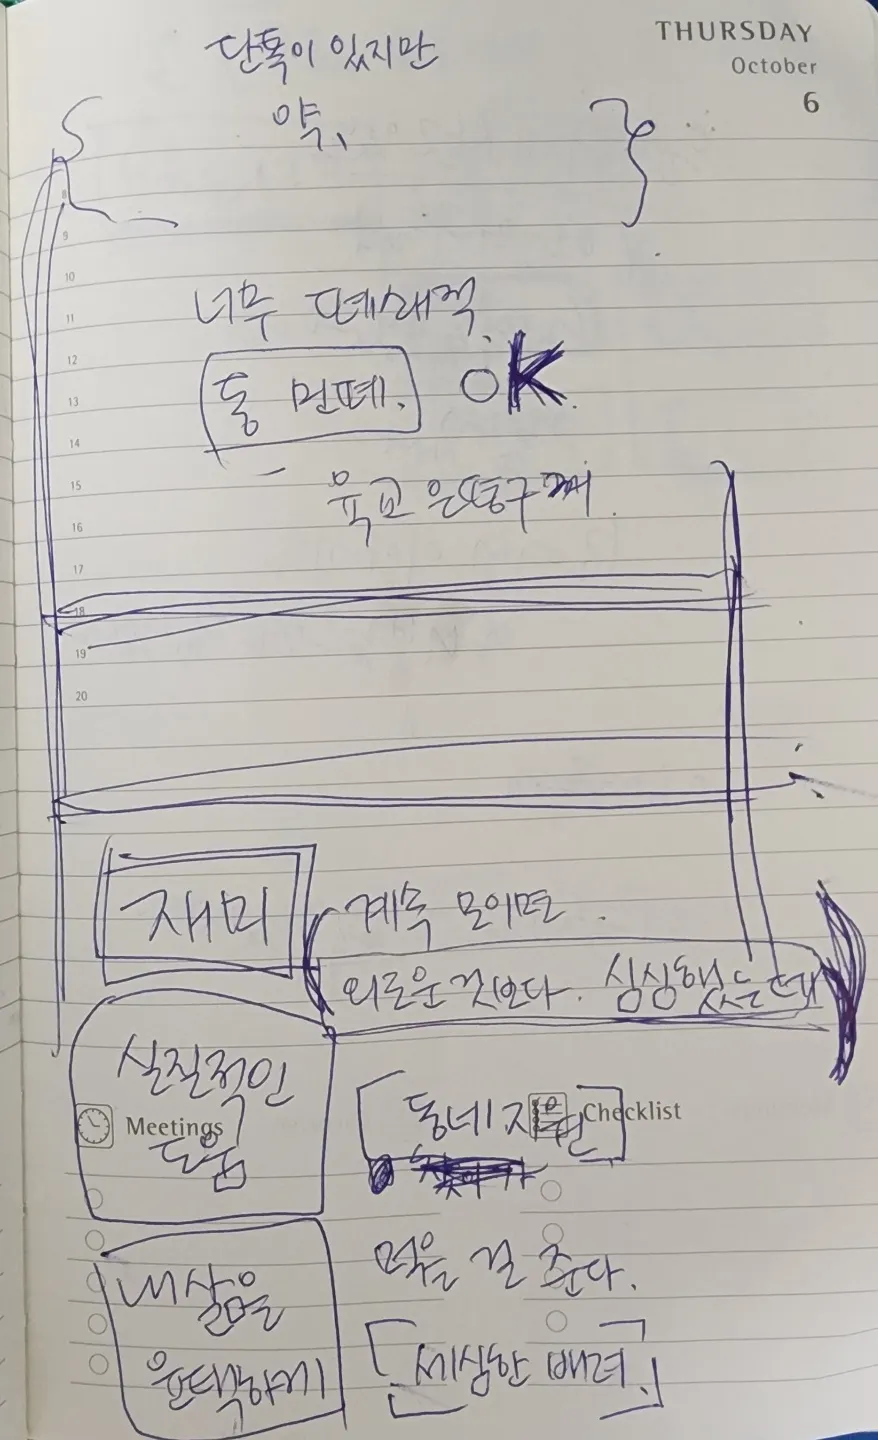 THURSDAY
October
6
단톡이 있지만
약,
8
9
10
너무 폐쇄적
11
12
톡 먼페. OK.
13
14
15
육교 운동구째.
16
17
18
19
20
재미
계속 모이면.
외로운 것보다. 싱싱했는데
실질적인
도움
Meetings
동네 지원
Checklist
찾아가
먹을 걸 준다.
내 삶을
윤택하게
세심한 배려.